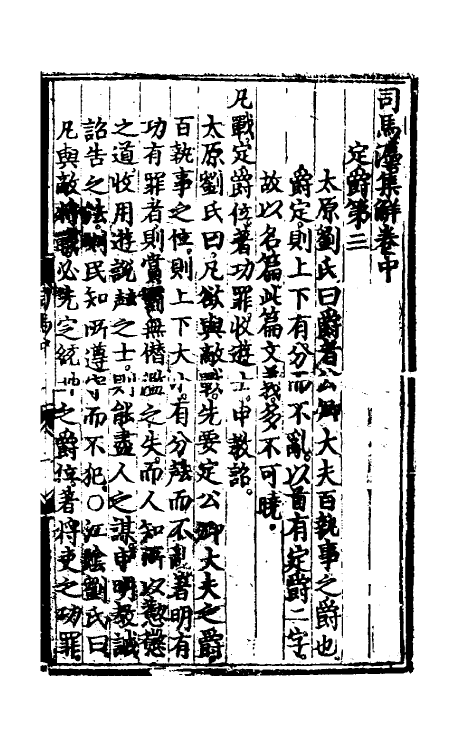 司馬灋集解卷中
定爵第三
太原劉氏曰爵者公卿大夫百執事之爵也
爵定則上下有分而不亂以首有定爵二字
故以名篇此篇文義多不可曉
凡戰定爵位著功罪收遊士申教詔
太原劉氏曰凡欲與敵戰先要定公卿大夫之爵
百執事之位則上下大小有分殽而不亂著明有
功有罪者則賞罰無僭濫之失而人知所以懲
之道收用遊說之士則能盡人之謀申明教誡
詔告之法則民知所遵守而不犯○江陰劉氏曰
凡與敵將戰必先定統帥之爵位著將吏之功罪